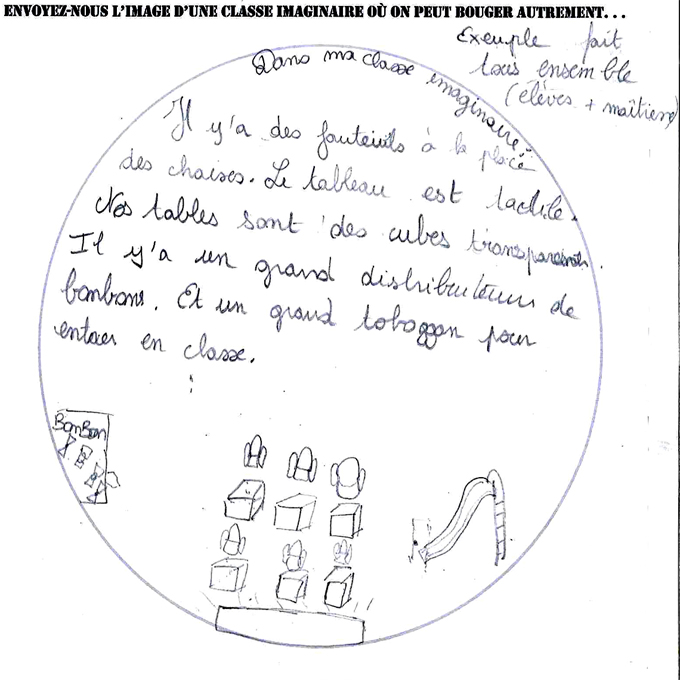 ENVOYEZ-NOUS L'IMAGE D'UNE CLASSE IMAGINAIRE OÙ ON PEUT BOUGER AUTREMENT...
Exemple fait
tous ensemble
(élèves + maîtresse)
Dans ma classe imaginaire:
Il y'a des fauteuils à la place
des chaises. Le tableau est tactile.
Nos tables sont des cubes transparents.
Il y'a un grand distributeur de
bonbons. Et un grand toboggan pour
entrer en classe.
BonBon